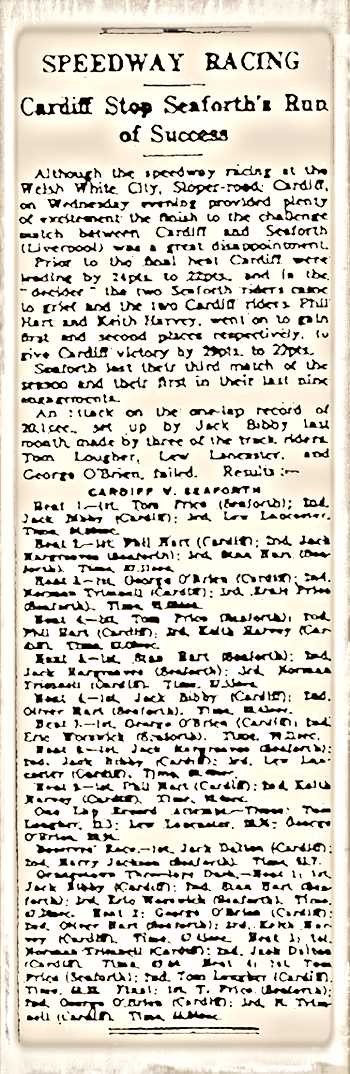 SPEEDWAY RACING
Cardiff Stop Seaforth's Run
of Success
Although the speedway racing at the
Welsh White City, Sloper-road, Cardiff,
on Wednesday evening provided plenty
of excitement the finish to the challenge
match between Cardiff and Seaforth
(Liverpool) was a great disappointment.
Prior to the final heat Cardiff were
leading by 24pts. to 22pts. and in the
"decider" the two Seaforth riders came
to grief and the two Cardiff riders, Phil
Hart and Keith Harvey, went on to gain
first and second places respectively, to
give Cardiff victory by pts. to pts.
Seaforth lost their third match of the
season and their first in their last nine
engagements.
An attack on the one-lap record of
20.1sec., set up by Jack Bibby last
month, made by three of the track riders,
Tom Lougher, Lew Lancaster, and
George O'Brien, failed. Results:—
CARDIFF V. SEAFORTH
Heat 1.—1st, Tom Price (Seaforth); 2nd,
Jack Bibby (Cardiff); 3rd, Lew Lancaster.
Time,
Heat 2.—1st, Phil Hart (Cardiff); 2nd, Jack
Hargreaves (Seaforth); 3rd, Stan Hart (Sea-
forth). Time,
Heat 3.—1st, George O'Brien (Cardiff); 2nd,
Norman Trimnell (Cardiff); 3rd, Ernie Price
(Seaforth). Time,
Heat 4.—1st, Tom Price (Seaforth); 2nd,
Phil Hart (Cardiff); 3rd, Keith Harvey (Car-
diff). Time,
Heat 5.—1st, Stan Hart (Seaforth); 2nd,
Jack Hargreaves (Seaforth); 3rd, Norman
Trimnell (Cardiff). Time,
Heat 6.—1st, Jack Bibby (Cardiff); 2nd,
Oliver Hart (Seaforth). Time,
Heat 7.—1st, George O'Brien (Cardiff); 2nd,
Eric Worswick (Seaforth). Time,
Heat 8.—1st, Jack Hargreaves (Seaforth);
2nd, Jack Bibby (Cardiff); 3rd, Lew Lan-
caster (Cardiff). Time,
Heat 9.—1st, Phil Hart (Cardiff); 2nd, Keith
Harvey (Cardiff). Time,
One Lap Record Attempt.—Times: Tom
Lougher, Lew Lancaster, George
O'Brien,
Reserves' Race.—1st, Jack Dalton (Cardiff);
2nd, Harry Jackson (Seaforth). Time,
Heat 1: 1st,
Jack Bibby (Cardiff); 2nd, Stan Hart (Sea-
forth); 3rd, Eric Worswick (Seaforth). Time,
Heat 2: George O'Brien (Cardiff);
2nd, Oliver Hart (Seaforth); 3rd, Keith Har-
vey (Cardiff). Time, Heat 3: 1st,
Norman Trimnell (Cardiff); 2nd, Jack Dalton
(Cardiff). Time, Heat 4: 1st, Tom
Price (Seaforth); 2nd, Tom Lougher (Cardiff).
Time, Final: 1st, T. Price (Seaforth);
2nd, George O'Brien (Cardiff); 3rd, N. Trim-
nell (Cardiff). Time,